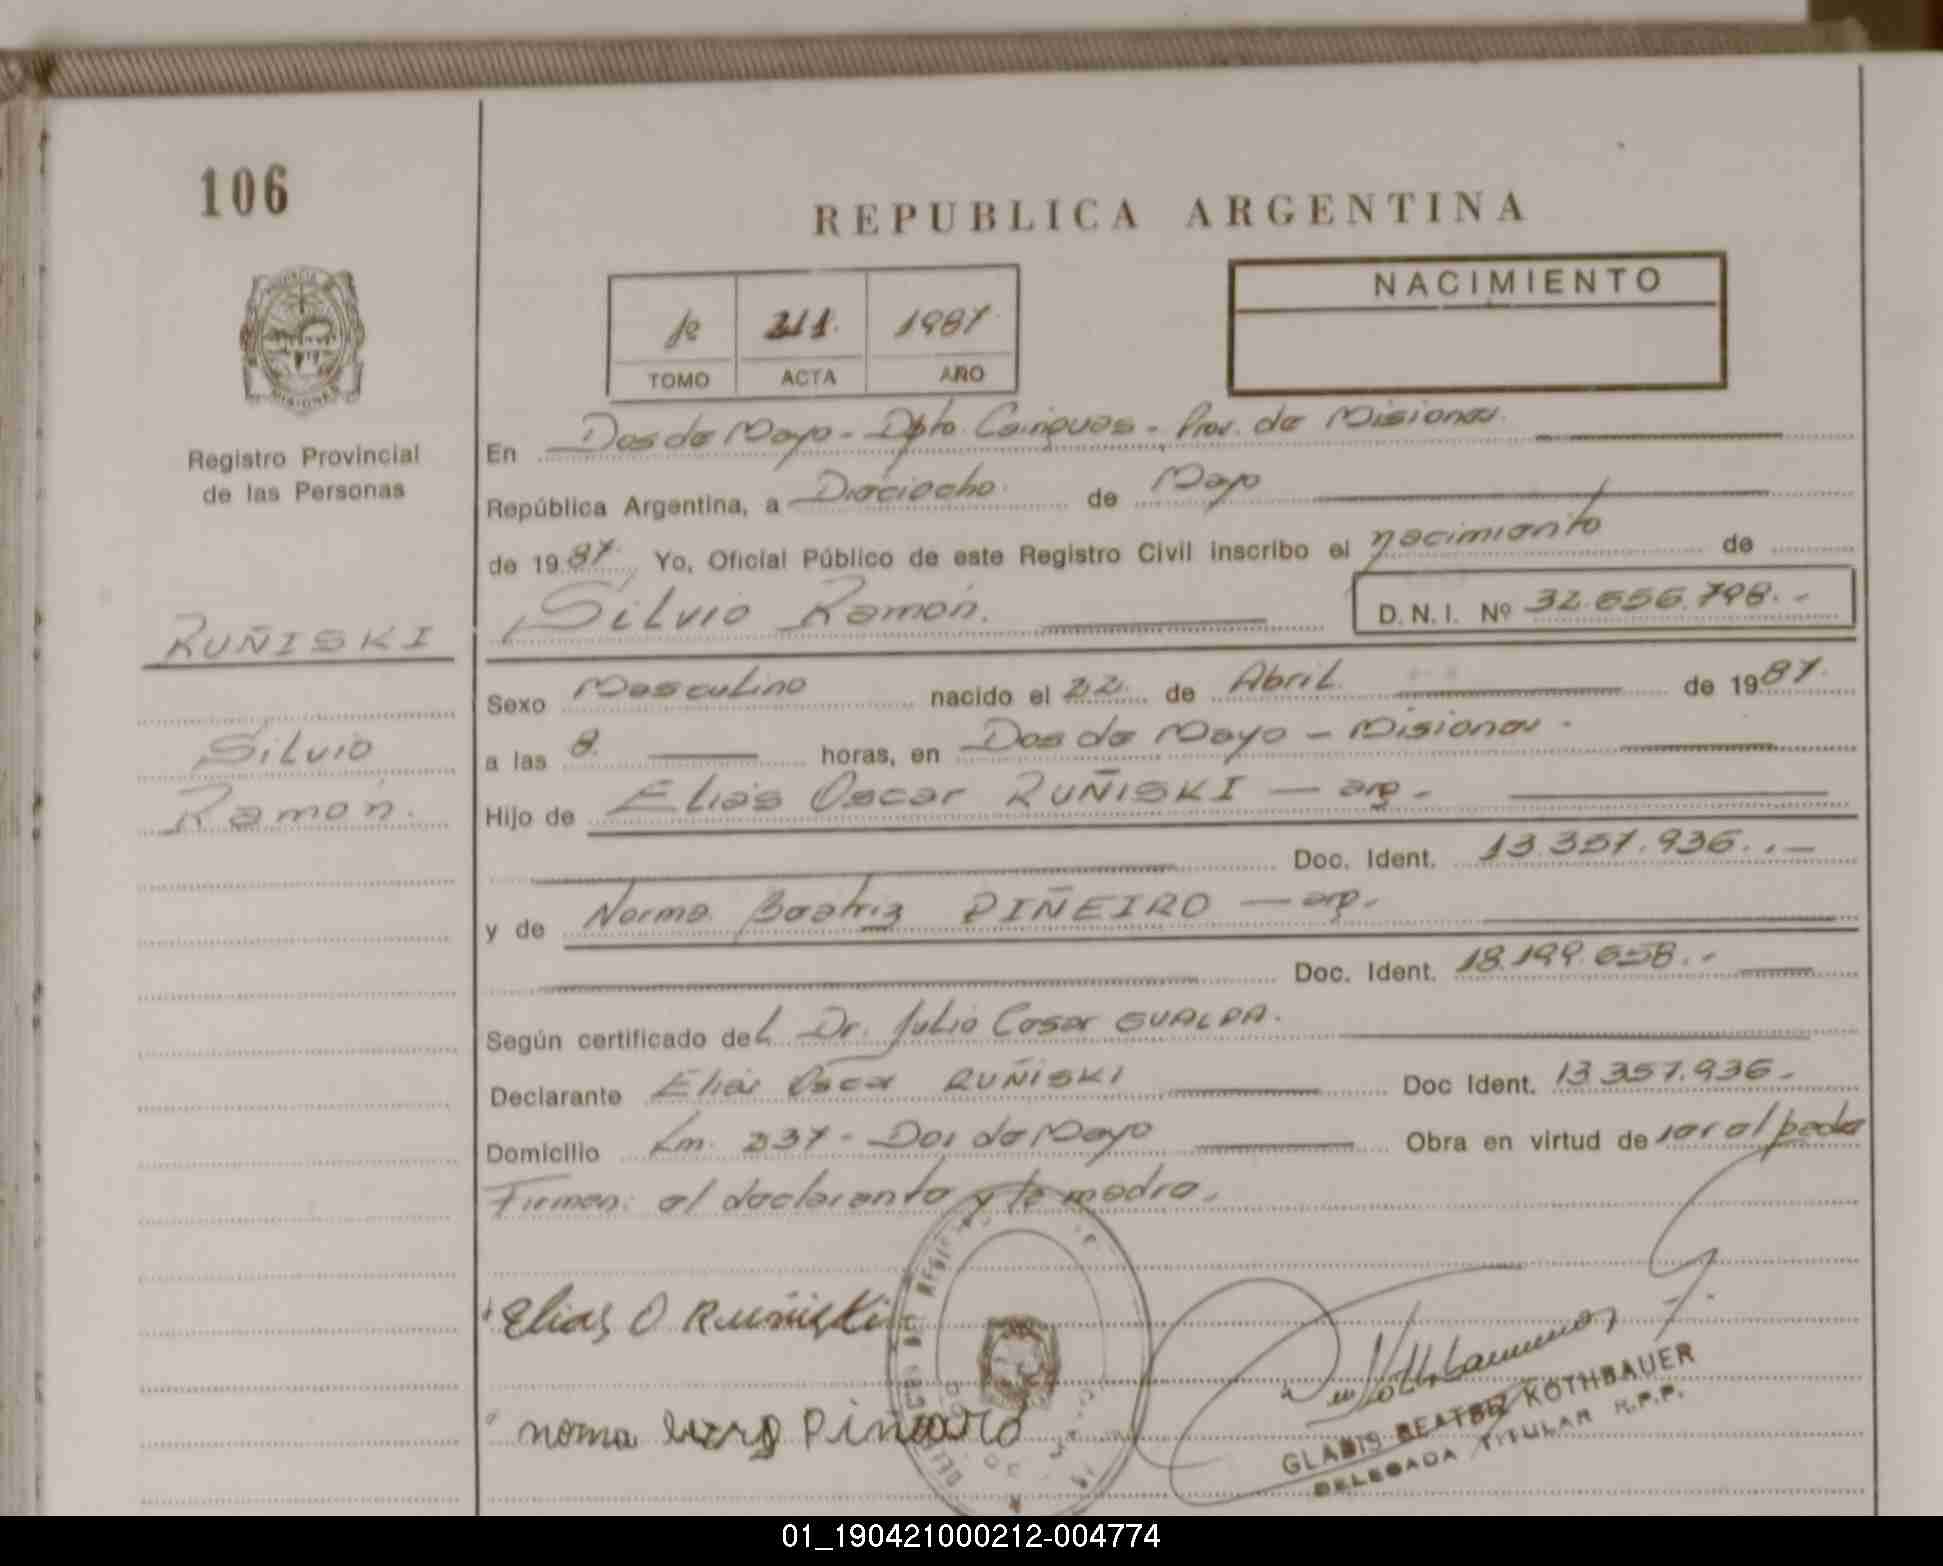 106
REPUBLICA ARGENTINA
NACIMIENTO
1º 211. 1987.
TOMO ACTA AÑO
Registro Provincial
de las Personas
En Dos de Mayo - Dpto. Cainguas - Prov. de Misiones.
República Argentina, a Dieciocho. de Mayo
de 1987. Yo, Oficial Público de este Registro Civil inscribo el nacimiento de
Silvio Ramón. D.N.I. Nº 32.656.798.-
RUÑISKI
Silvio
Ramón.
Sexo Masculino nacido el 22. de Abril. de 1987.
a las 8. horas, en Dos de Mayo - Misiones.
Hijo de Elias Oscar RUÑISKI - arg.
Doc. Ident. 13.357.936.-
y de Norma Beatriz PIÑEIRO - arg.
Doc. Ident. 18.199.658.-
Según certificado del Dr. Julio Cesar GUALDA.
Declarante Elias Oscar RUÑISKI Doc Ident. 13.357.936.
Domicilio Km. 237 - Dos de Mayo Obra en virtud de ser el padre
Firman: el declarante y la madre.
Elias O Ruñiski
noma
GLADIS BEATRIZ KOTHBAUER
DELEGADA TITULAR R.P.P.
01_190421000212-004774